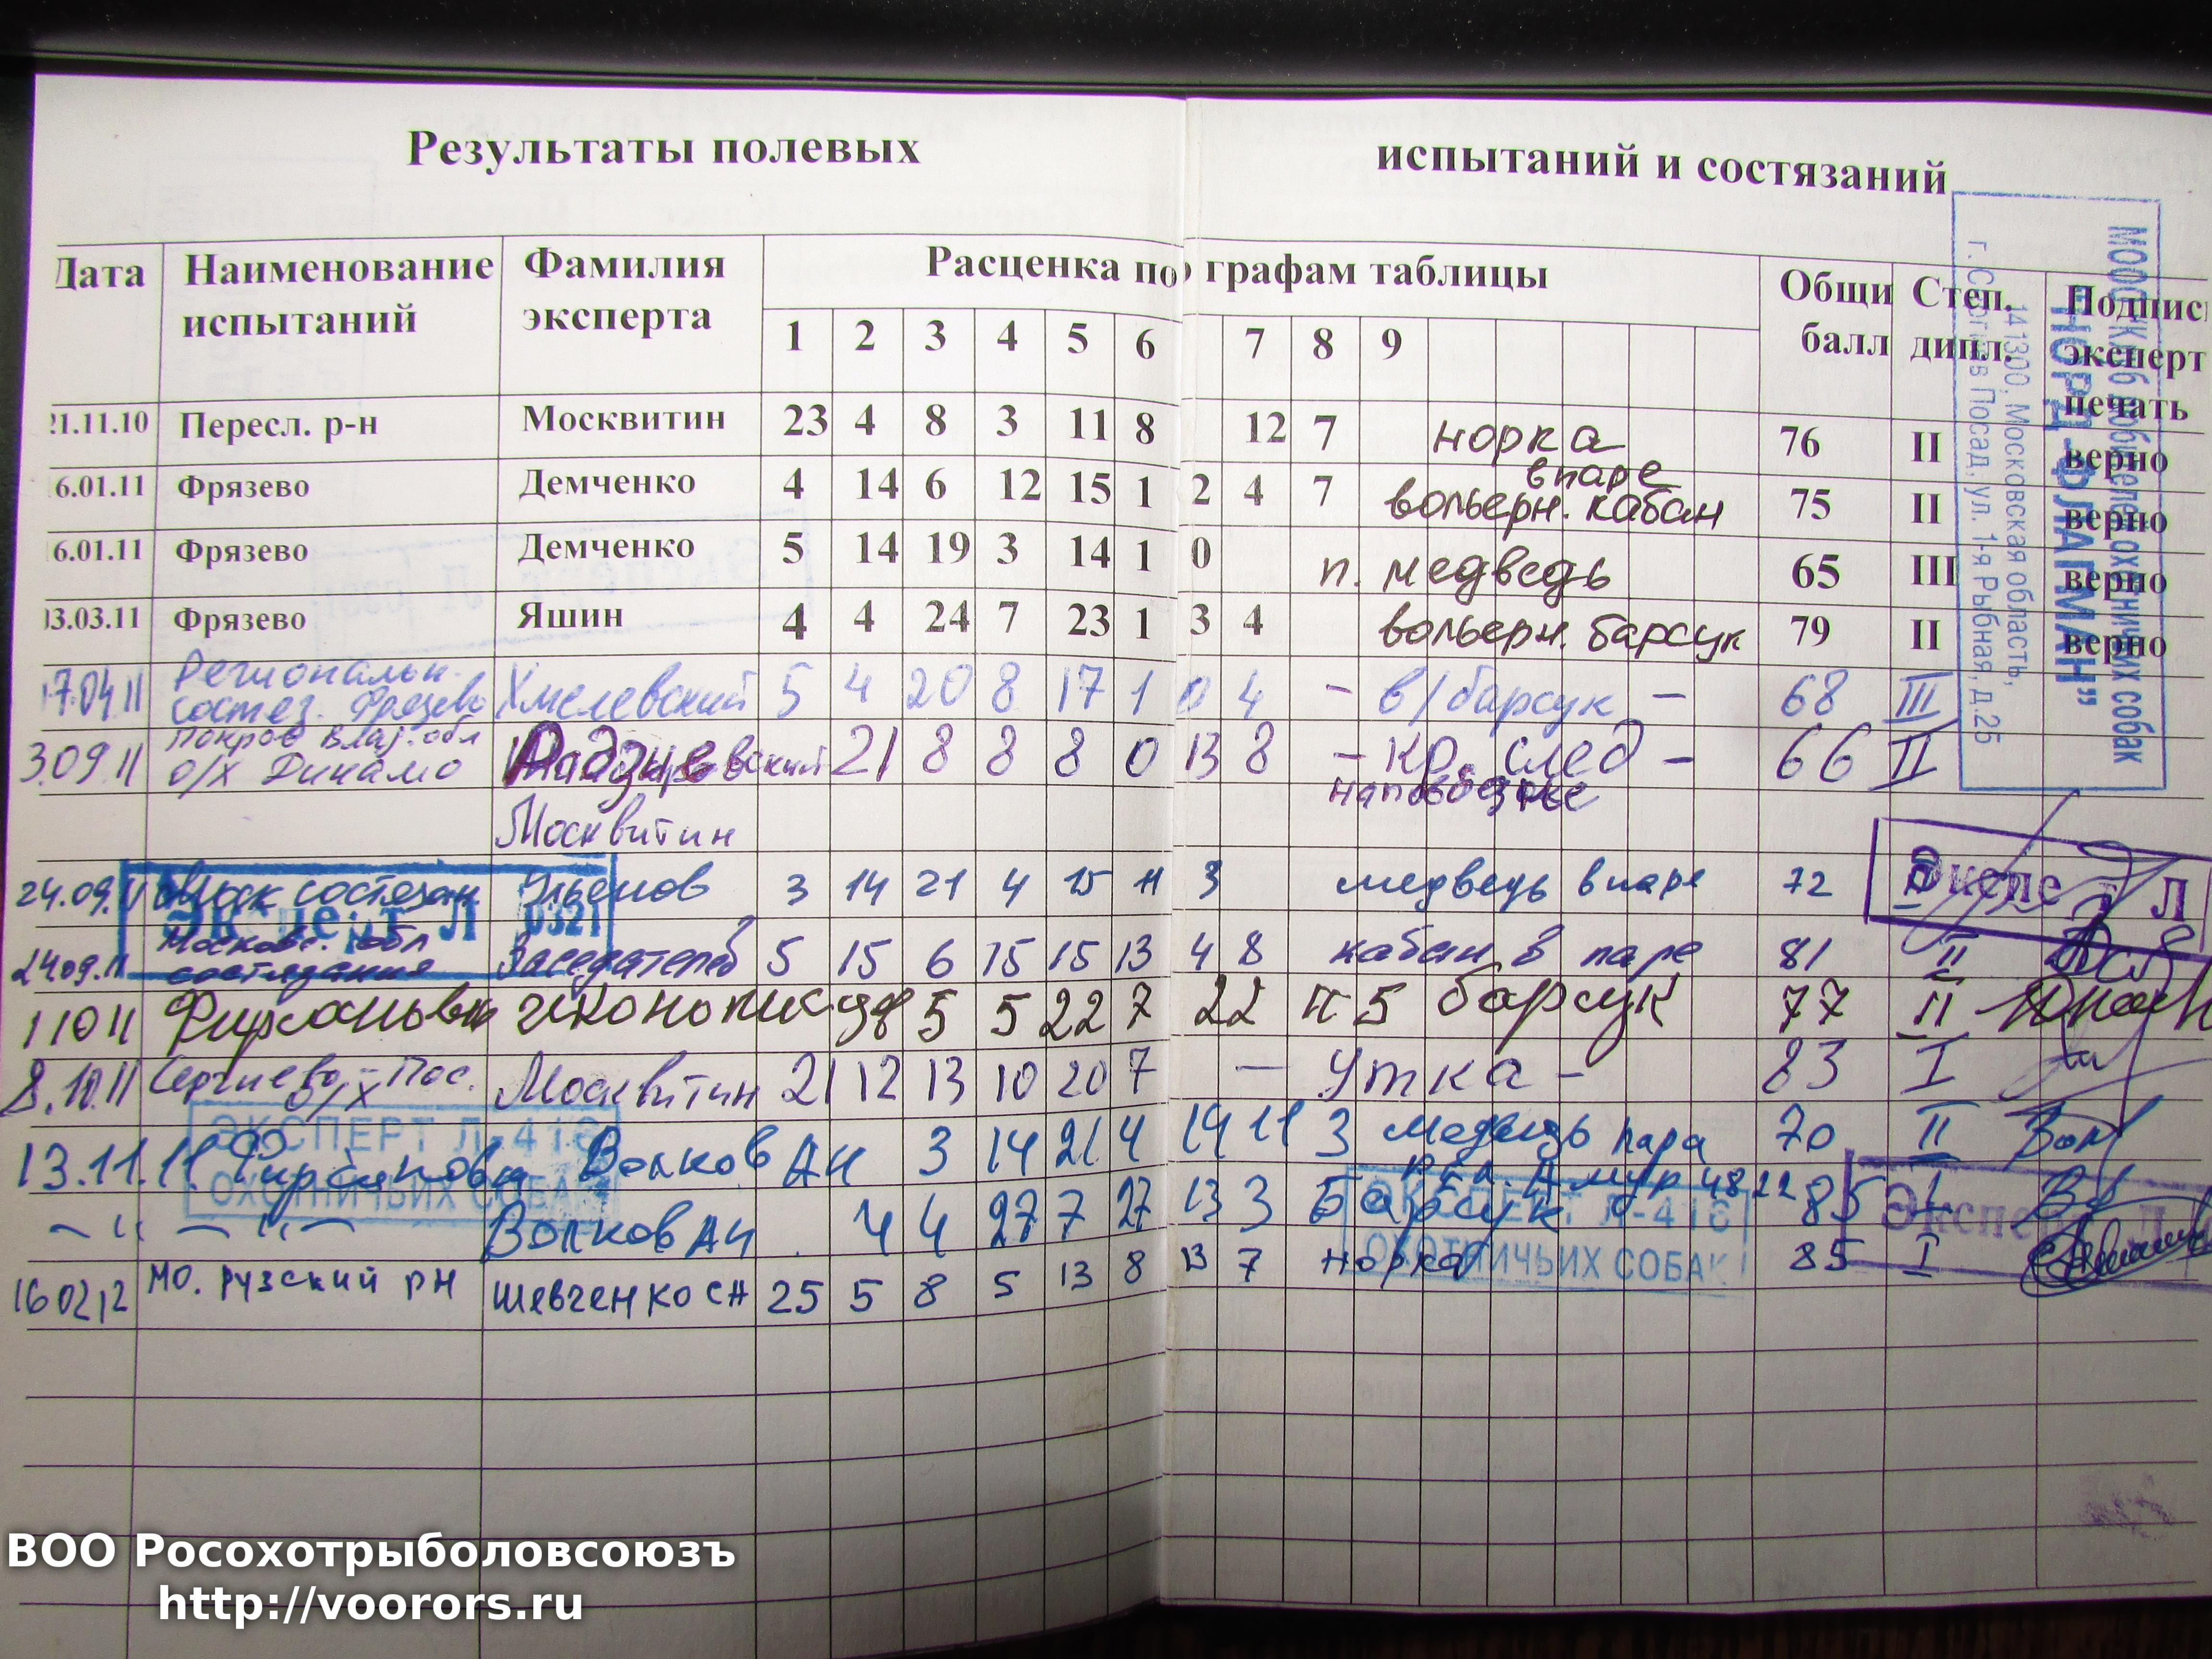 Результаты полевых испытаний и состязаний
Дата Наименование испытаний Фамилия эксперта Расценка по графам таблицы Общи балл Степ. дипл. Подпис эксперт печать
1 2 3 4 5 6 7 8 9
21.11.10 Пересл. р-н Москвитин 23 4 8 3 11 8 12 7 норка 76 II верно
6.01.11 Фрязево Демченко 4 14 6 12 15 1 2 4 7 вольерн. кабан в паре 75 II верно
6.01.11 Фрязево Демченко 5 14 19 3 14 1 0 п. медведь 65 III верно
03.03.11 Фрязево Яшин 4 4 24 7 23 1 3 4 вольерн. барсук 79 II верно
17.04 11 Региональн. состяз. Фрязево Хмелевский 5 4 20 8 17 1 0 4 - в/барсук - 68 III
3.09 11 Покров Влад. обл о/х Динамо 21 8 8 8 0 13 8 - кр. след - 66 II
на поводке
Москвитин
24.09.11 состязан 3 14 21 4 15 11 3 медведь в паре 72
24.09.11 Московс. обл состязания Заседателев 5 15 6 15 15 13 4 8 кабан в паре 81 II
1 10 11 5 5 22 7 22 5 барсук 77 II
8.10.11 Сергиево-Пос. о/х Москвитин 21 12 13 10 20 7 - утка - 83 I
13.11.11 Волков АИ 3 14 21 4 14 11 3 медведь пара 70 II
Амур 4822
-"- -"- Волков АИ 4 4 27 7 27 13 3 Барсук 85 I
16 02 12 МО. Рузский рн Шевченко СН 25 5 8 5 13 8 13 7 норка 85 I
МООО "Клуб любителей охотничьих собак
"НОРД ФЛАГМАН"
141300, Московская область,
г. Сергиев Посад, ул. 1-я Рыбная, д.25
Эксперт Л 0321
Эксперт Л
ЭКСПЕРТ Л-416
ОХОТНИЧЬИХ СОБАК
ЭКСПЕРТ Л-416
ОХОТНИЧЬИХ СОБАК
Эксперт Л
ВОО Росохотрыболовсоюзъ
http://voorors.ru